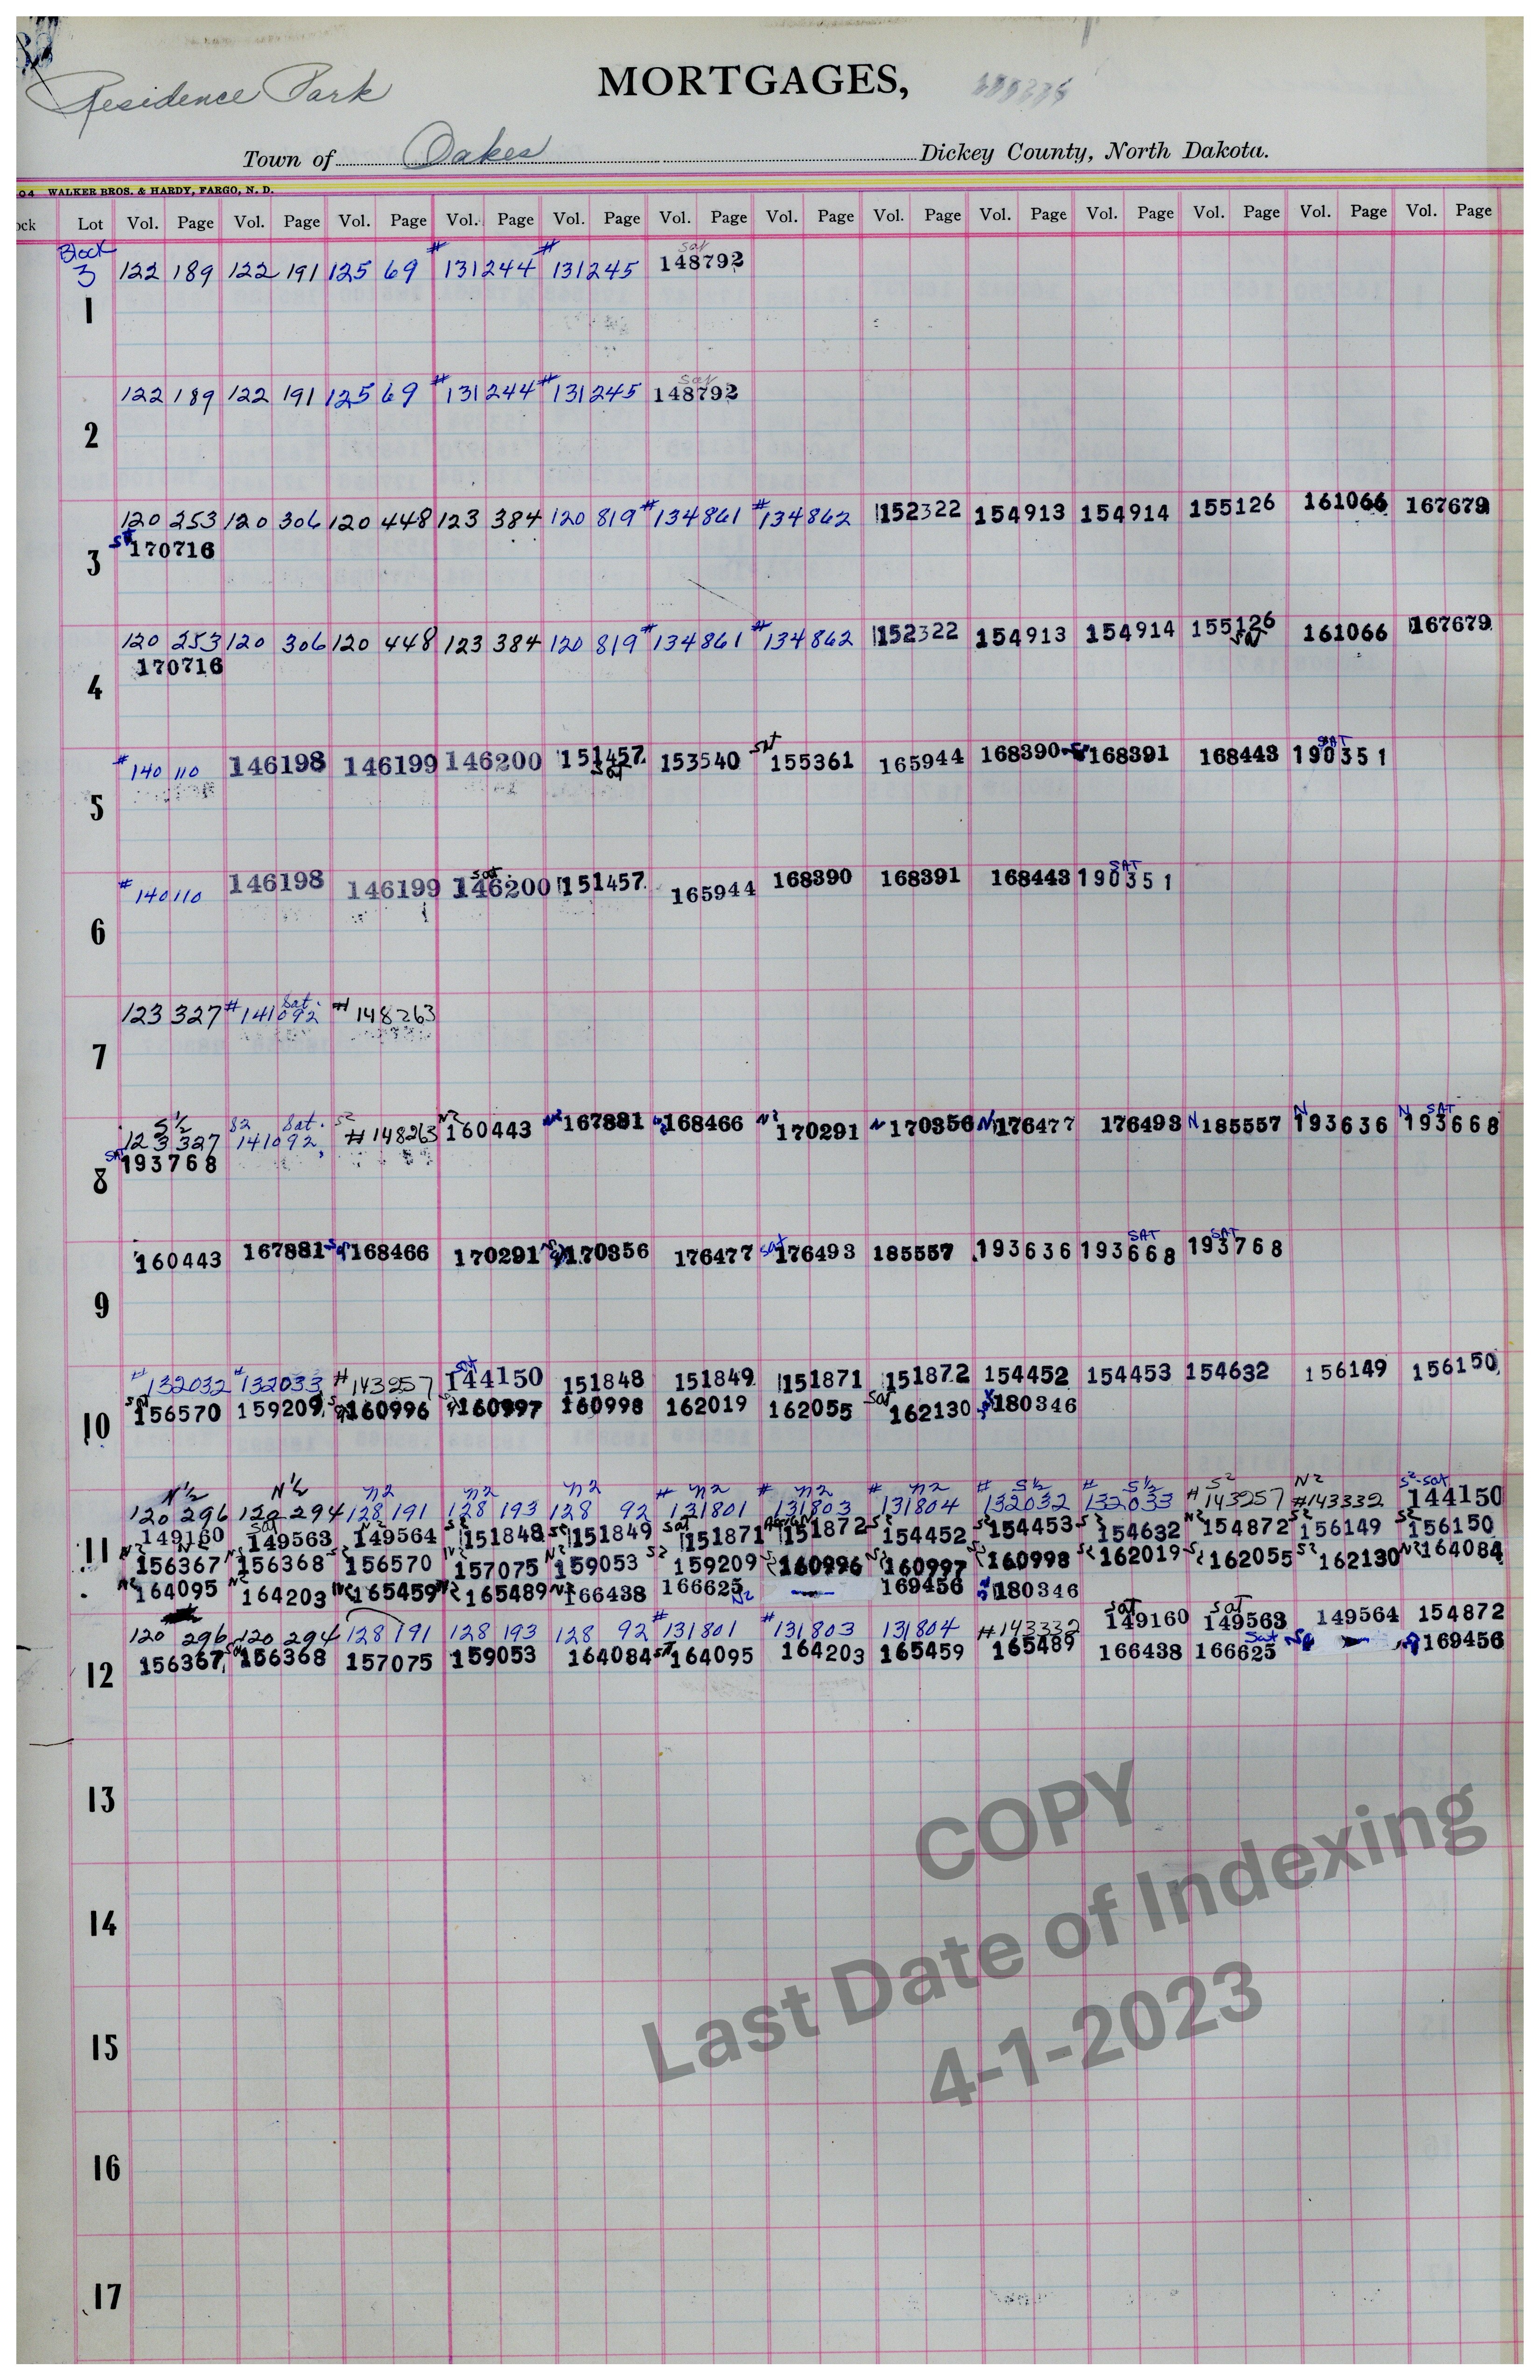 Residence Park
MORTGAGES,
Town of Oakes Dickey County, North Dakota.
04 WALKER BROS. & HARDY, FARGO, N. D.
ock Lot Vol. Page Vol. Page Vol. Page Vol. Page Vol. Page Vol. Page Vol. Page Vol. Page Vol. Page Vol. Page Vol. Page Vol. Page Vol. Page
Block sat
3 122 189 122 191 125 69 #131244 #131245 148792
1
sat
122 189 122 191 125 69 #131244 #131245 148792
2
120 253 120 306 120 448 123 384 120 819 #134861 #134862 152322 154913 154914 155126 161066 167679
170716
3
120 253 120 306 120 448 123 384 120 819 #134861 #134862 152322 154913 154914 155126 161066 167679
170716
4
SAT
#140110 146198 146199 146200 151457 153540 155361 165944 168390 168391 168443 190351
sat
5
sat SAT
#140110 146198 146199 146200 151457 165944 168390 168391 168443 190351
6
Sat.
123 327 #141092 #148263
7
S½ S2 Sat. S2 N2 N2 N2 N N N N N SAT
123 327 141092 #148263 160443 167881 168466 170291 170356 176477 176493 185557 193636 193668
SAT 193768
8
sat SAT SAT
160443 167881 168466 170291 170356 176477 176493 185557 193636 193668 193768
9
sat
#132032 #132033 #143257 144150 151848 151849 151871 151872 154452 154453 154632 156149 156150
156570 159209 160996 160997 160998 162019 162055 sat 162130 180346
10
N½ N½ n2 n2 n2 n2 n2 n2 S½ S½ S2 N2 S2-sat
120 296 120 294 128 191 128 193 128 92 #131801 #131803 #131804 #132032 #132033 #143257 #143332 144150
149160 149563 149564 151848 151849 151871 151872 154452 154453 154632 154872 156149 156150
11 156367 156368 156570 157075 159053 159209 160996 160997 160998 162019 162055 162130 164084
164095 164203 165459 165489 166438 166625 169456 180346
sat sat
120 296 120 294 128 191 128 193 128 92 #131801 #131803 131804 #143332 149160 149563 149564 154872
156367 156368 157075 159053 164084 164095 164203 165459 165489 166438 166625 169456
12
13
14
15
16
17
COPY
Last Date of Indexing
4-1-2023